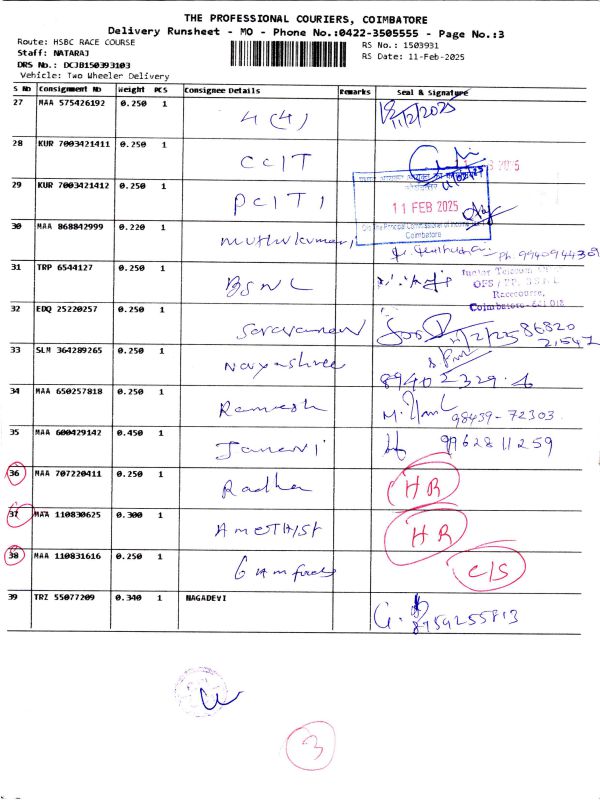 THE PROFESSIONAL COURIERS, COIMBATORE
Delivery Runsheet - MO - Phone No.:0422-3505555 - Page No.:3
Route: HSBC RACE COURSE
Staff: NATARAJ
DRS No.: DCJB150393103
Vehicle: Two Wheeler Delivery
RS No.: 1503931
RS Date: 11-Feb-2025
S No Consignment No Weight PCS Consignee Details Remarks Seal & Signature
27 MAA 575426192 0.250 1 4 (4) 11/2/2025
28 KUR 7003421411 0.250 1 CCIT
29 KUR 7003421412 0.250 1 PCIT 1
11 FEB 2025
Coimbatore
30 MAA 868842999 0.220 1 Muthukumar Ph. 9940944309
31 TRP 6544127 0.250 1 BSNL
Junior Telecom
Racecourse,
Coimbatore - 641 018
32 EDQ 25220257 0.250 1 Saravanan 11/2/25 86820
33 SLM 364289265 0.250 1 Nayashree
89402329.6
34 MAA 650257818 0.250 1 Ramesh 98439-72303
35 MAA 600429142 0.450 1 Janani 9962811259
36 MAA 707220411 0.250 1 Radha HR
37 MAA 110830625 0.300 1 Amethist HR
38 MAA 110831616 0.250 1 C/S
39 TRZ 55077209 0.340 1 NAGADEVI G. 8759255813
3